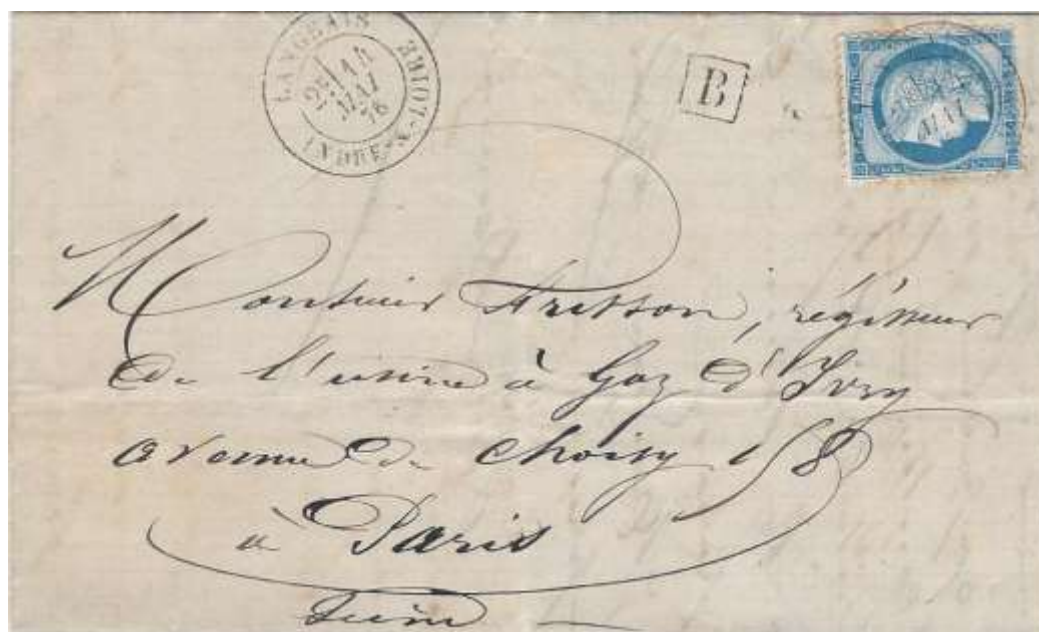 LANGEAIS
2E 14
MAI
76
INDRE-&-LOIRE
B
MAI
Monsieur Fresson, régisseur
de l'usine à Gaz d'Ivry
avenue de Choisy 158
à Paris
Seine